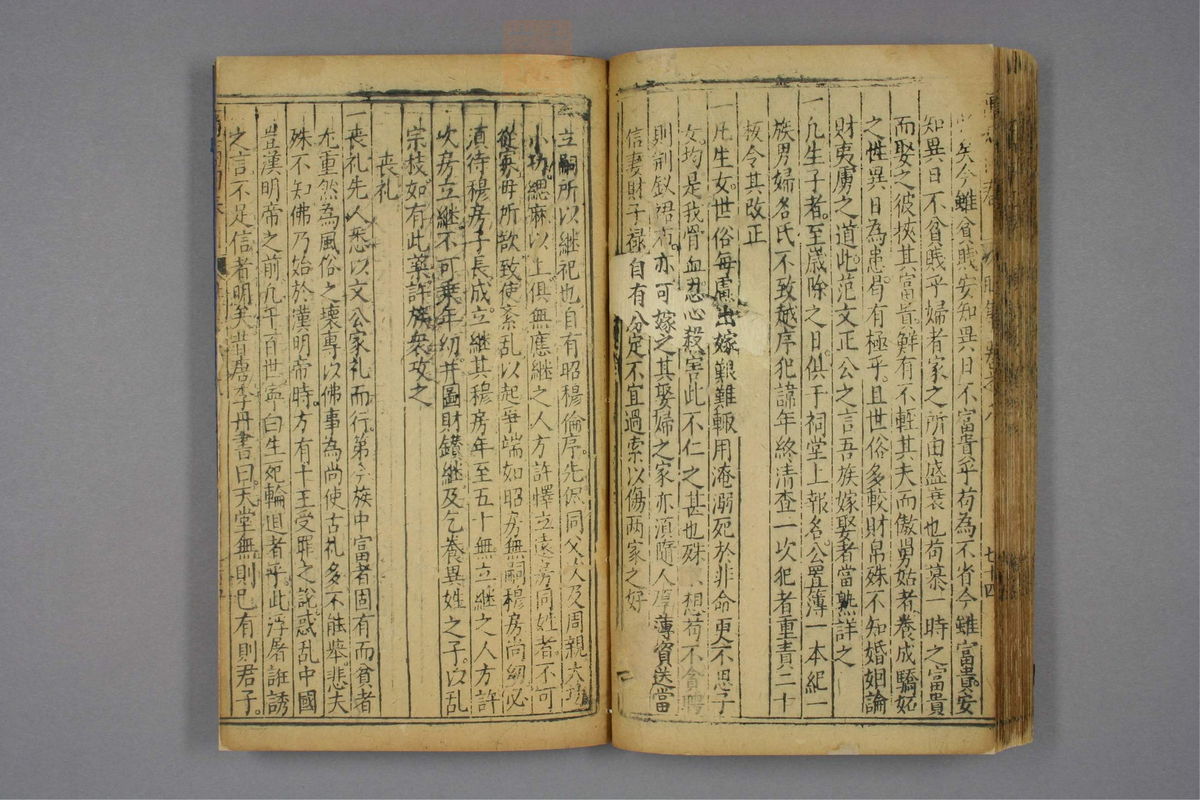 矣今雖貧賤安知異日不富貴乎苟為不肖今雖富貴安
知異日不貧賤乎婦者家之所由盛衰也苟慕一時之富貴
而娶之彼挾其富貴鮮有不輕其夫而傲舅姑者養成驕妬
之性異日為患曷有極乎且世俗多較財帛殊不知婚姻論
財夷虜之道此范文正公之言吾族嫁娶者當熟詳之
一凡生子者至歲除之日俱于祠堂上報名公置簿一本紀一
族男婦名氏不致越序犯諱年終清查一次犯者重責二十
板令其改正
一凡生女世俗每慮出嫁艱難輙用淹溺死於非命更不思子
女均是我骨血忍心殺害此不仁之甚也殊 想苟不貪聘
則荆釵裙布亦可嫁之其娶婦之家亦湏隨人厚薄資送當
信妻財子祿自有分定不宜過索以傷两家之好
一
立嗣所以継祀也自有昭穆倫序先侭同父次及周親大功
小功緦麻以上俱無應継之人方許擇立遠房同姓者不可
從寡母所欲致使紊乱以起爭端如昭房無嗣穆房尚幼必
湏待穆房子長成立継其穆房年至五十無立継之人方許
次房立継不可乗年幼并圖財錯継及乞養異姓之子以乱
宗枝如有此獘許族衆攻之
丧礼
一丧礼先人悉以文公家礼而行第今族中富者固有而貧者
尤重然為風俗之壞專以佛事為尚使古礼多不能舉悲夫
殊不知佛乃始於漢明帝時方有十王受罪之說惑乱中國
豈漢明帝之前九千百世盂曰生死輪迴者乎此浮屠誑誘
之言不足信者明矣昔唐李丹書曰天堂無則已有則君子